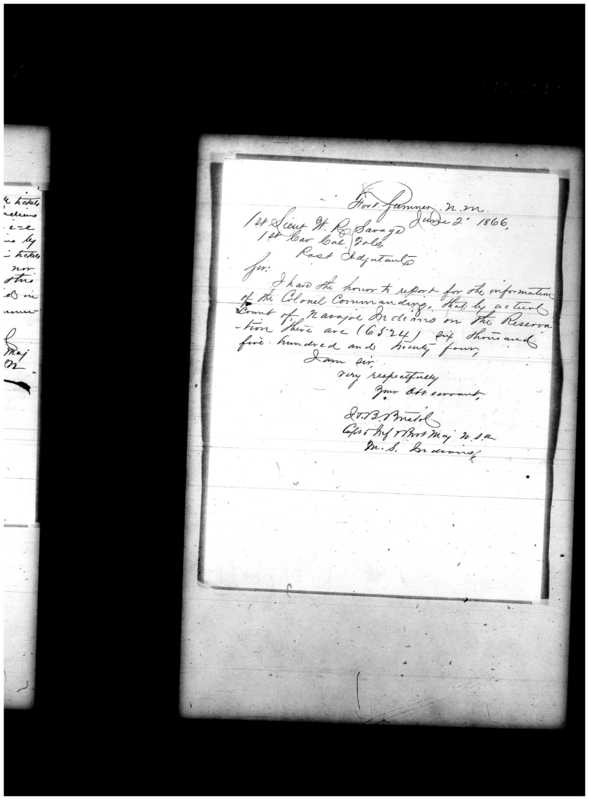 Fort Sumner, N.M.
June 2d 1866,
1st Lieut W. R. Savage
1st Cav Cal Vols
Post Adjutant
Sir:
I have the honor to report for the information
of the Colonel Commanding, that by actual
Count of Navajoe Indians on the Reserva
-tion there are (6524) six thousand
five hundred and twenty four,
I am sir,
very respectfully
Your Obt servant
H. B. Bristol
Capt 5 Inf & Bvt Maj U.S.A.
M. S. Indians
hotels
by
nor
this
in
Maj